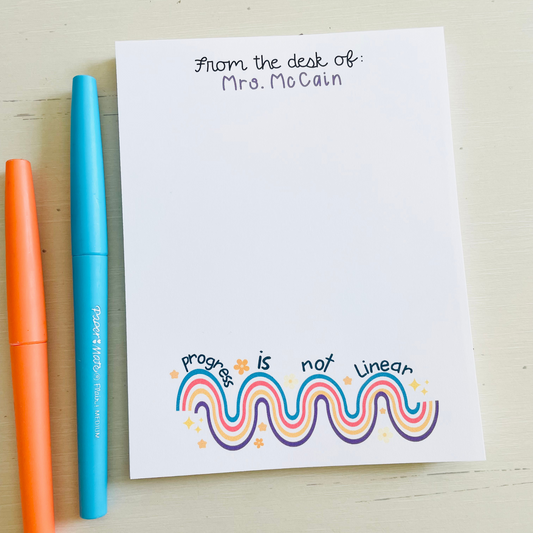 From the desk of:
Mrs. McCain
progress is not Linear
Paper Mate Flair · MEDIUM